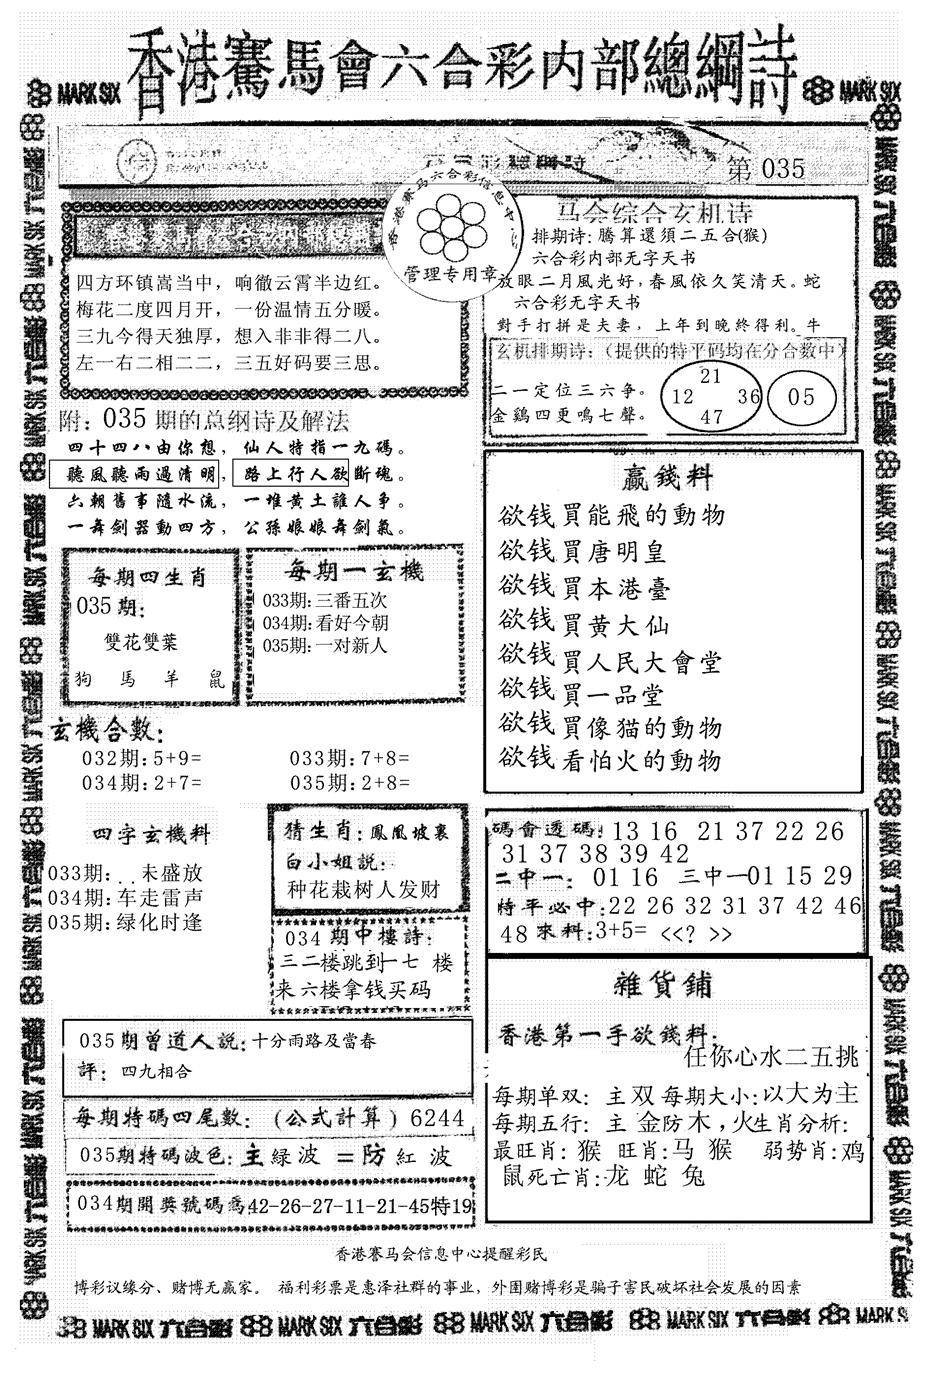 香港賽馬會六合彩内部總綱詩
MARK SIX
MARK SIX
第 035
香港赛马六合彩信息中心
管理专用章
四方环镇嵩当中，响徹云霄半边红。
梅花二度四月开，一份温情五分暖。
三九今得天独厚，想入非非得二八。
左一右二相二二，三五好码要三思。
马会综合玄机诗
排期诗: 騰算還須二五合(猴)
六合彩内部无字天书
放眼二月風光好，春風依久笑清天。蛇
六合彩无字天书
對手打拼是夫妻，上年到晚終得利。牛
玄机排期诗:（提供的特平码均在分合数中）
二一定位三六争。
金鷄四更鳴七聲。
21
12 36
47
05
附: 035 期的总纲诗及解法
四十四八由你想，仙人特指一九碼。
聽風聽雨過清明，路上行人欲斷魂。
六朝舊事隨水流，一堆黄土誰人争。
一舞劍器動四方，公孫娘娘舞劍氣。
每期四生肖
035 期:
雙花雙葉
狗 馬 羊 鼠
每期一玄機
033期: 三番五次
034期: 看好今朝
035期: 一对新人
赢錢料
欲钱買能飛的動物
欲钱買唐明皇
欲钱買本港臺
欲钱買黄大仙
欲钱買人民大會堂
欲钱買一品堂
欲钱買像猫的動物
欲钱看怕火的動物
玄機合數:
032期: 5+9= 033期: 7+8=
034期: 2+7= 035期: 2+8=
四字玄機料
033期: . . 未盛放
034期: 车走雷声
035期: 绿化时逢
猜生肖: 鳳凰坡裏
白小姐説:
种花栽树人发财
034 期中樓詩:
三二楼跳到一七 楼
来 六楼拿钱买码
碼會透碼: 13 16 21 37 22 26
31 37 38 39 42
二中一: 01 16 三中一01 15 29
特平必中: 22 26 32 31 37 42 46
48 來料: 3+5= <<? >>
035 期曾道人説: 十分雨路及當春
評: 四九相合
每期特碼四尾數: (公式計算) 6244
035期特碼波色: 主 緑 波 = 防 紅 波
034期開獎號碼爲42-26-27-11-21-45特19
雜貨鋪
香港第一手欲錢料:
任你心水二五挑
每期单双: 主 双 每期大小: 以大为主
每期五行: 主 金防木，火生肖分析:
最旺肖: 猴 旺肖: 马 猴 弱势肖: 鸡
鼠死亡肖: 龙 蛇 兔
香港赛马会信息中心提醒彩民
博彩议缘分、赌博无赢家。 福利彩票是惠泽社群的事业，外围赌博彩是骗子害民破坏社会发展的因素
MARK SIX 六合彩 MARK SIX 六合彩 MARK SIX 六合彩 MARK SIX 六合彩 MARK SIX